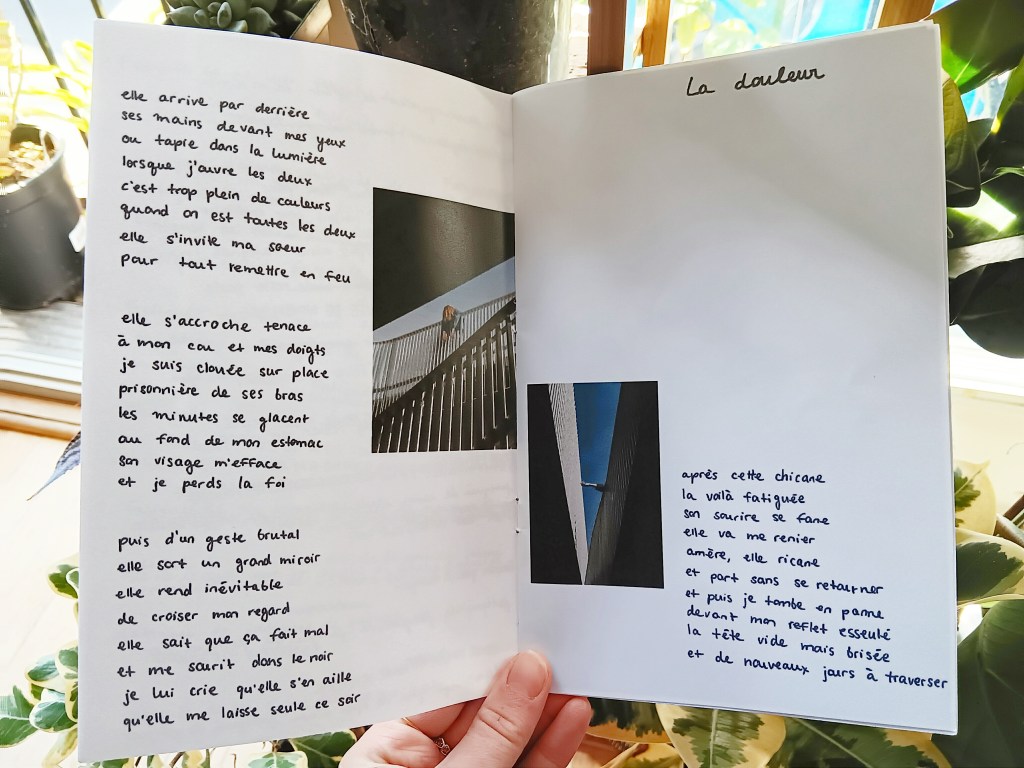 elle arrive par derrière
ses mains devant mes yeux
ou tapie dans la lumière
lorsque j'ouvre les deux
c'est trop plein de couleurs
quand on est toutes les deux
elle s'invite ma sœur
pour tout remettre en feu
elle s'accroche tenace
à mon cou et mes doigts
je suis clouée sur place
prisonnière de ses bras
les minutes se glacent
au fond de mon estomac
son visage m'efface
et je perds la foi
puis d'un geste brutal
elle sort un grand miroir
elle rend inévitable
de croiser mon regard
elle sait que ça fait mal
et me sourit dans le noir
je lui crie qu'elle s'en aille
qu'elle me laisse seule ce soir
La douleur
après cette chicane
la voilà fatiguée
son sourire se fane
elle va me renier
amère, elle ricane
et part sans se retourner
et puis je tombe en panne
devant mon reflet esseulé
la tête vide mais brisée
et de nouveaux jours à traverser